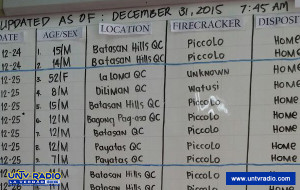 UPDATED AS OF : DECEMBER 31, 2015 7:45 AM
DATE AGE/SEX LOCATION FIRECRACKER DISPOSI
12-24 1. 15/M Batasan Hills QC Piccolo HOME
12-24 2. 14/M Batasan Hills QC Piccolo HOME
12-25 3. 52/F La Loma QC Unknown HOME
12-25 4. 8/M DILIMAN QC Watusi HOME
12-25 5. 15/M Batasan Hills QC Piccolo HOME
12-25 6. 12/M Bagong QC Piccolo HOME
12-25 7. 12/M Batasan QC Piccolo HOME
12-25 8. 12/M Payatas QC Piccolo HOME
12-25 9. 7/M Payatas QC Piccolo HOME
/M Batasan Hills QC Piccolo HOME
Hills QC Piccolo
UNTV RADIO
LA VERDAD
www.untvradio.com